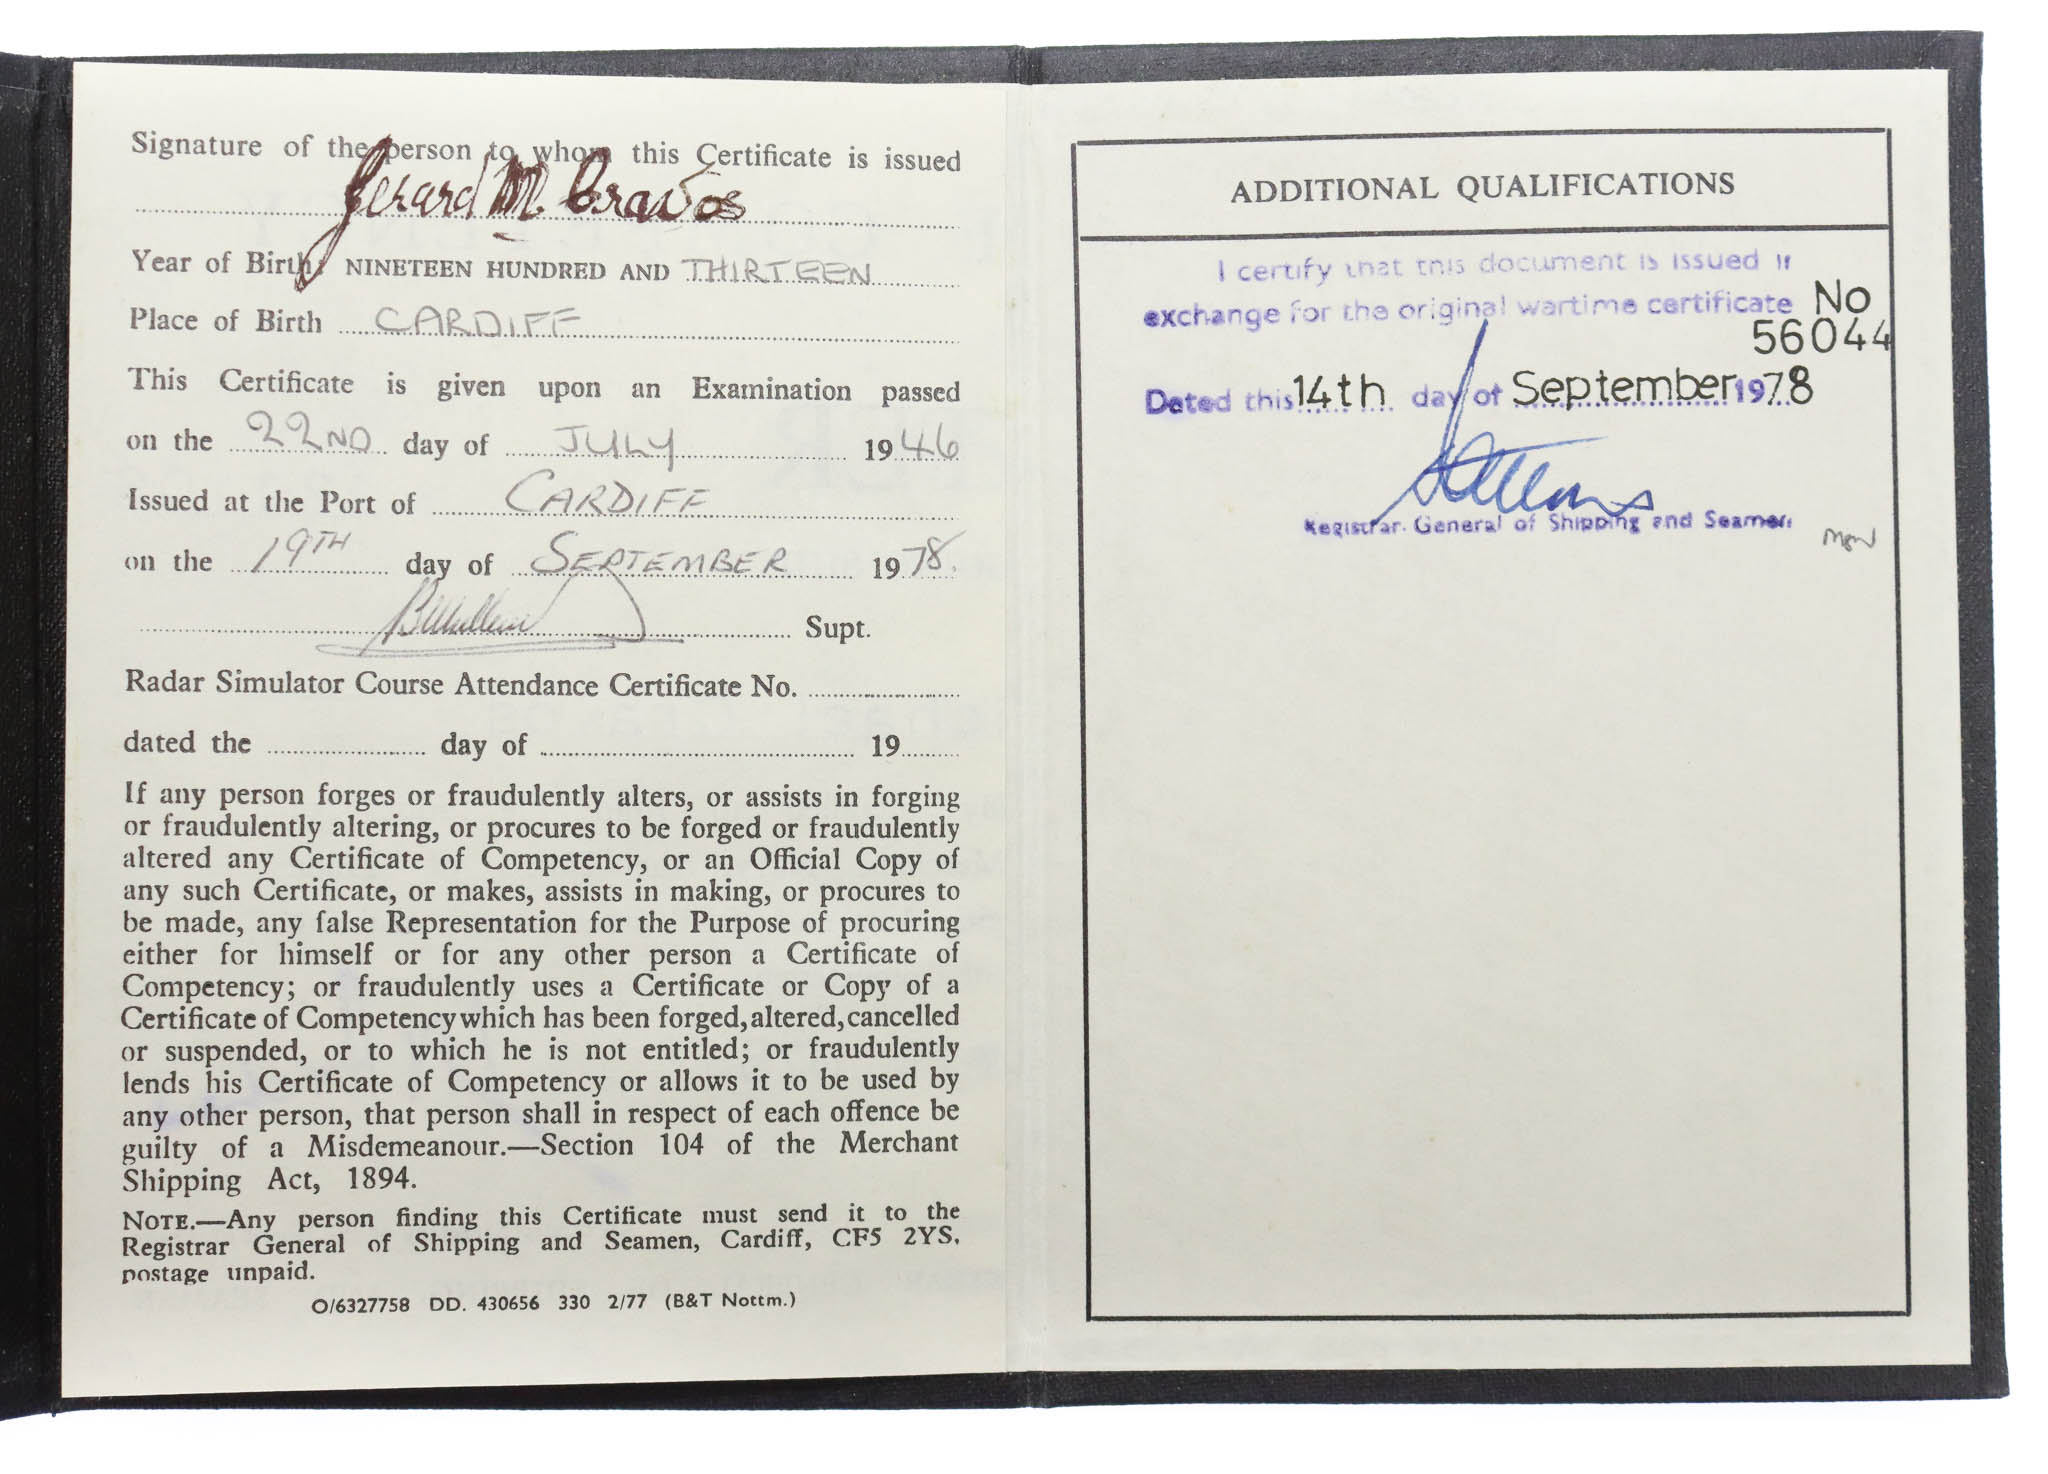 Signature of the person to whom this Certificate is issued
Gerard M.
Year of Birth, NINETEEN HUNDRED AND THIRTEEN
Place of Birth CARDIFF
This Certificate is given upon an Examination passed
on the 22ND day of JULY 1946
Issued at the Port of CARDIFF
on the 19TH day of SEPTEMBER 1978.
Supt.
Radar Simulator Course Attendance Certificate No.
dated the day of 19
If any person forges or fraudulently alters, or assists in forging
or fraudulently altering, or procures to be forged or fraudulently
altered any Certificate of Competency, or an Official Copy of
any such Certificate, or makes, assists in making, or procures to
be made, any false Representation for the Purpose of procuring
either for himself or for any other person a Certificate of
Competency; or fraudulently uses a Certificate or Copy of a
Certificate of Competency which has been forged, altered, cancelled
or suspended, or to which he is not entitled; or fraudulently
lends his Certificate of Competency or allows it to be used by
any other person, that person shall in respect of each offence be
guilty of a Misdemeanour.—Section 104 of the Merchant
Shipping Act, 1894.
NOTE.—Any person finding this Certificate must send it to the
Registrar General of Shipping and Seamen, Cardiff, CF5 2YS,
postage unpaid.
O/6327758 DD. 430656 330 2/77 (B&T Nottm.)
ADDITIONAL QUALIFICATIONS
I certify that this document is issued in
exchange for the original wartime certificate No
56044
Dated this 14th day of September 1978
Registrar General of Shipping and Seamen